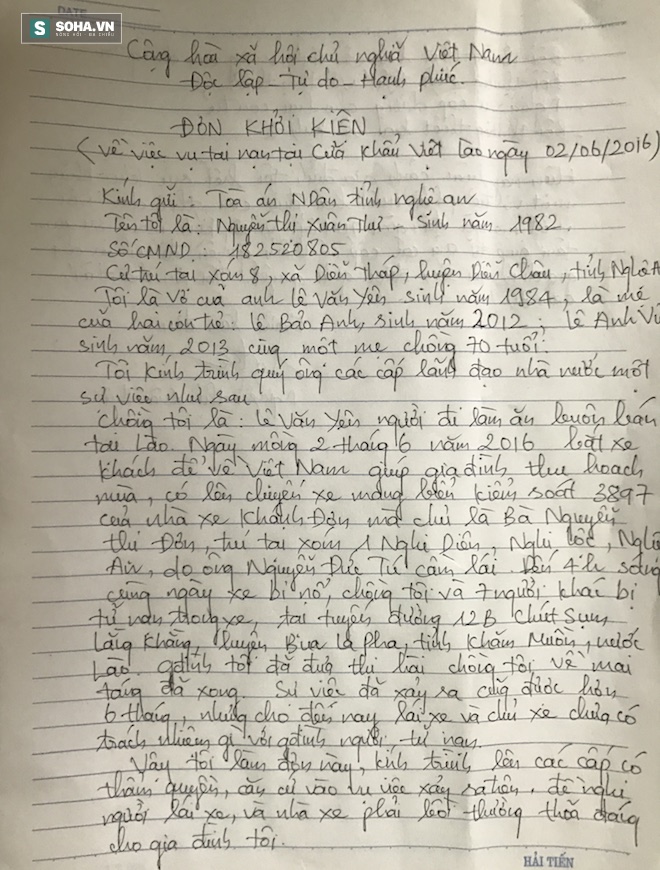 DATE
S SOHA.VN
SỐNG HỐI - ĐA CHIỀU
Cộng hoà xã hội chủ nghĩa Việt Nam
Độc lập - Tự do - Hạnh phúc.
ĐƠN KHỞI KIỆN
(về việc vụ tai nạn tại Cửa khẩu Việt Lào ngày 02/06/2016)
Kính gửi : Toà án NDân tỉnh nghệ an
Tên tôi là : Nguyễn thị Xuân Thư - Sinh năm 1982.
Số CMND : 182520805
Cư trú tại xóm 8, xã Diễn Tháp, huyện Diễn Châu, tỉnh Nghệ A
Tôi là vợ của anh Lê Văn Yên sinh năm 1984, là mẹ
của hai con trẻ: Lê Bảo Anh, sinh năm 2012 ; Lê Anh Vũ
sinh năm 2013 cùng một mẹ chồng 70 tuổi.
Tôi kính trình quý ông các cấp lãnh đạo nhà nước một
sự việc như sau
Chồng tôi là : Lê Văn Yên người đi làm ăn buôn bán
tại Lào. Ngày mồng 2 tháng 6 năm 2016 bắt xe
khách để về Việt Nam giúp gia đình thu hoạch
mùa, có lên chuyến xe mang biển kiểm soát 3897
của nhà xe Khánh Đơn mà chủ là Bà Nguyễn
thị Đơn, trú tại xóm 1 Nghi Diên, Nghi Lộc, Nghệ
An, do ông Nguyễn Đức Tú cầm lái. Đến 4h sáng
cùng ngày xe bị nổ, chồng tôi và 7 người khác bị
tử nạn trong xe, tại tuyến đường 12B Chút Sum
Lằng Khằng, huyện Bua La Pha, tỉnh Khăm Muôn, nước
Lào. gđình tôi đã đưa thi hài chồng tôi về mai
táng đã xong. Sự việc đã xảy ra cũng được hơn
6 tháng, nhưng cho đến nay lái xe và chủ xe chưa có
trách nhiệm gì với gđình người tử nạn.
Vậy tôi làm đơn này, kính trình lên các cấp có
thẩm quyền, căn cứ vào vụ việc xảy ra trên. đề nghị
người lái xe, và nhà xe phải bồi thường thoã đáng
cho gia đình tôi.
HẢI TIẾN